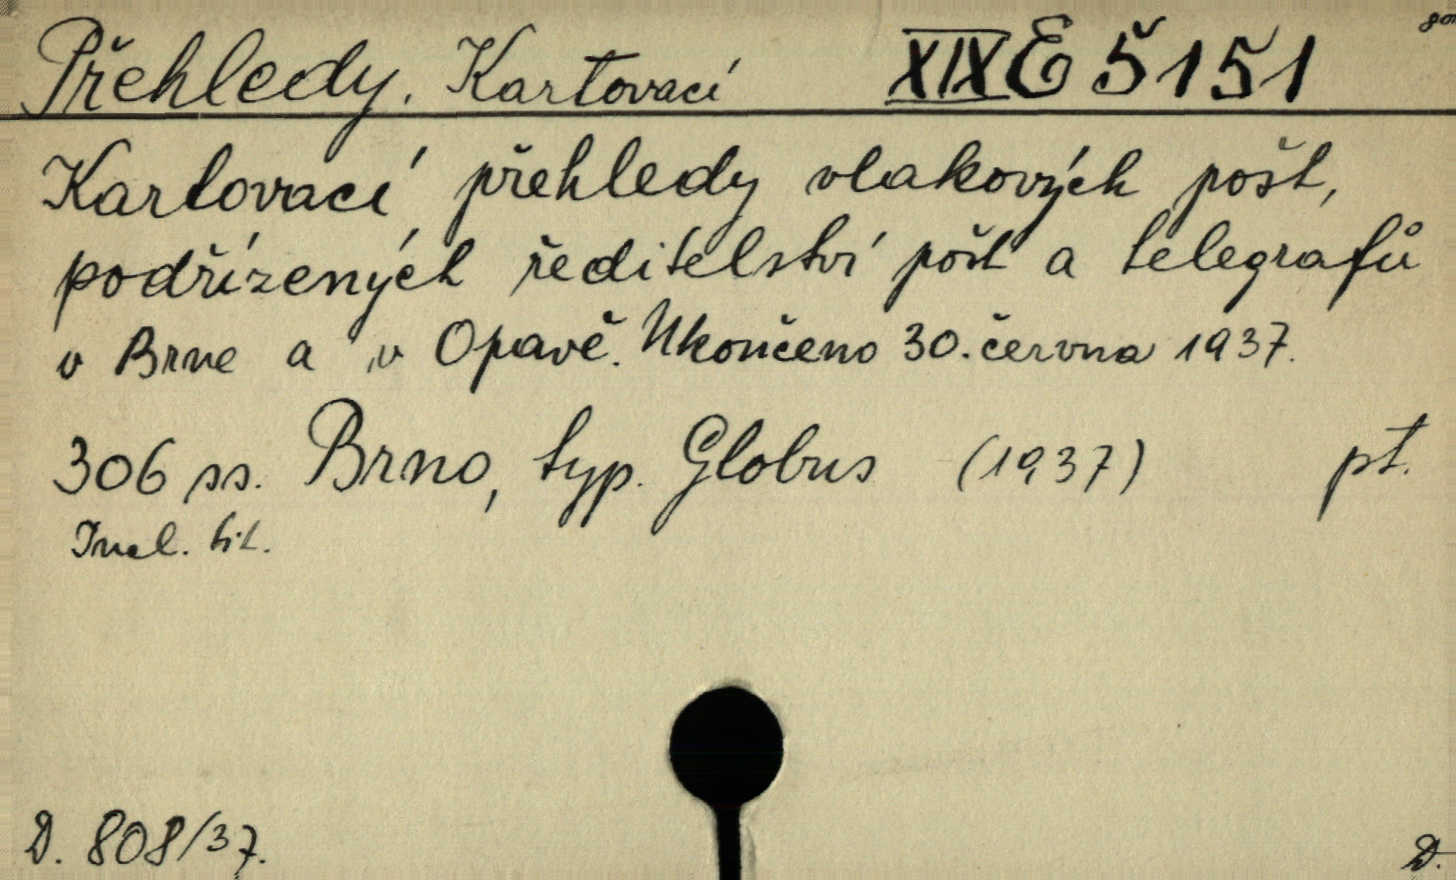 Přehledy. Kartovací XIX E 5151
Kartovací přehledy vlakových pošt,
podřízených ředitelství pošt a telegrafů
v Brne a v Opavě. Ukončeno 30. června 1937.
306 ss. Brno, typ. Globus (1937) pt.
Incl. tit.
D. 808/37. D.